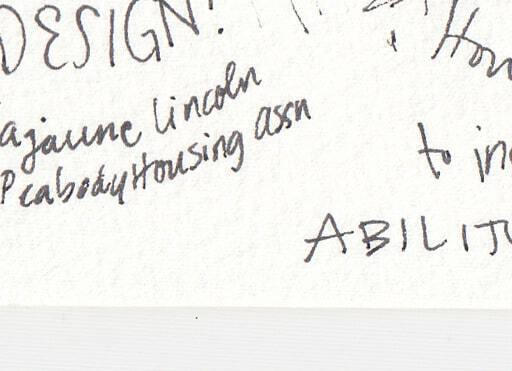 DESIGN!
ajaune Lincoln
Peabody Housing assn
to
ABILIT